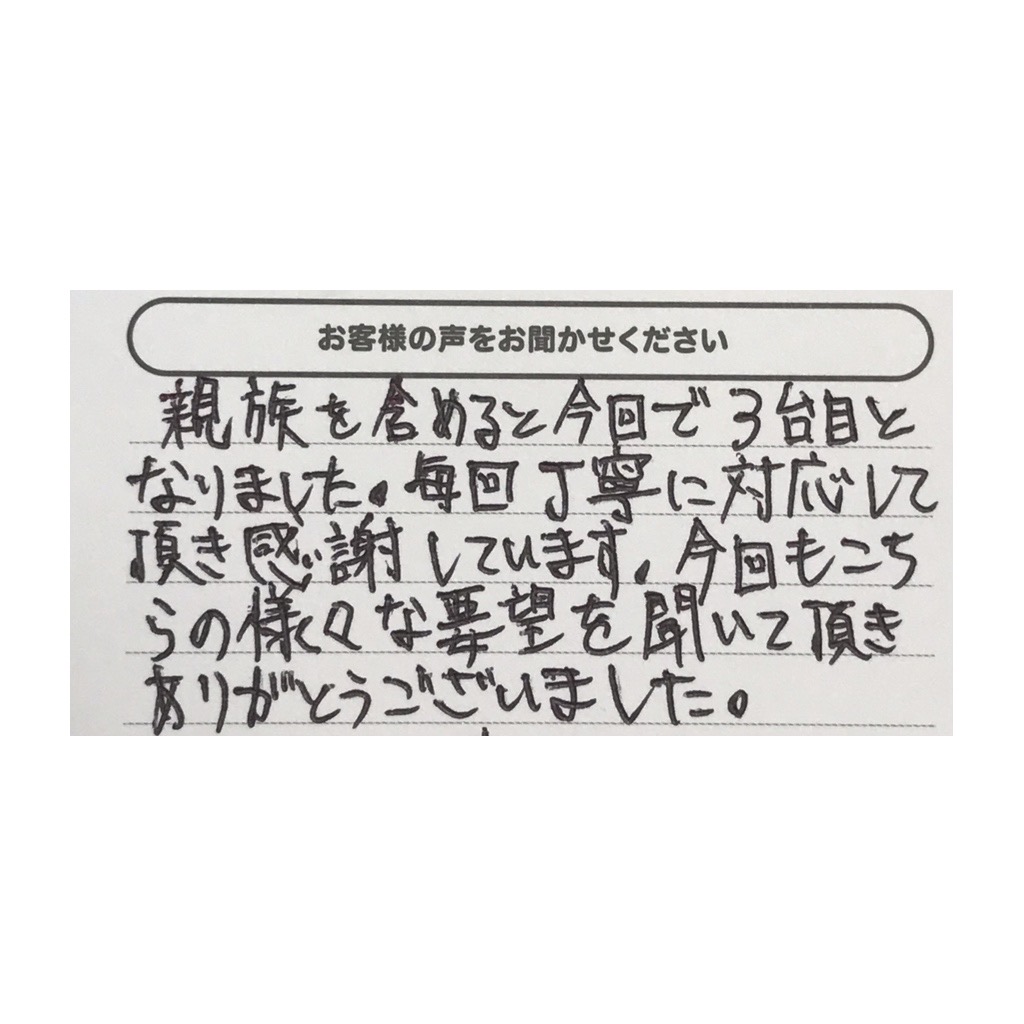 お客様の声をお聞かせください
親族を含めると今回で3台目と
なりました。毎回丁寧に対応して
頂き感謝しています。今回もこち
らの様々な要望を聞いて頂き
ありがとうございました。